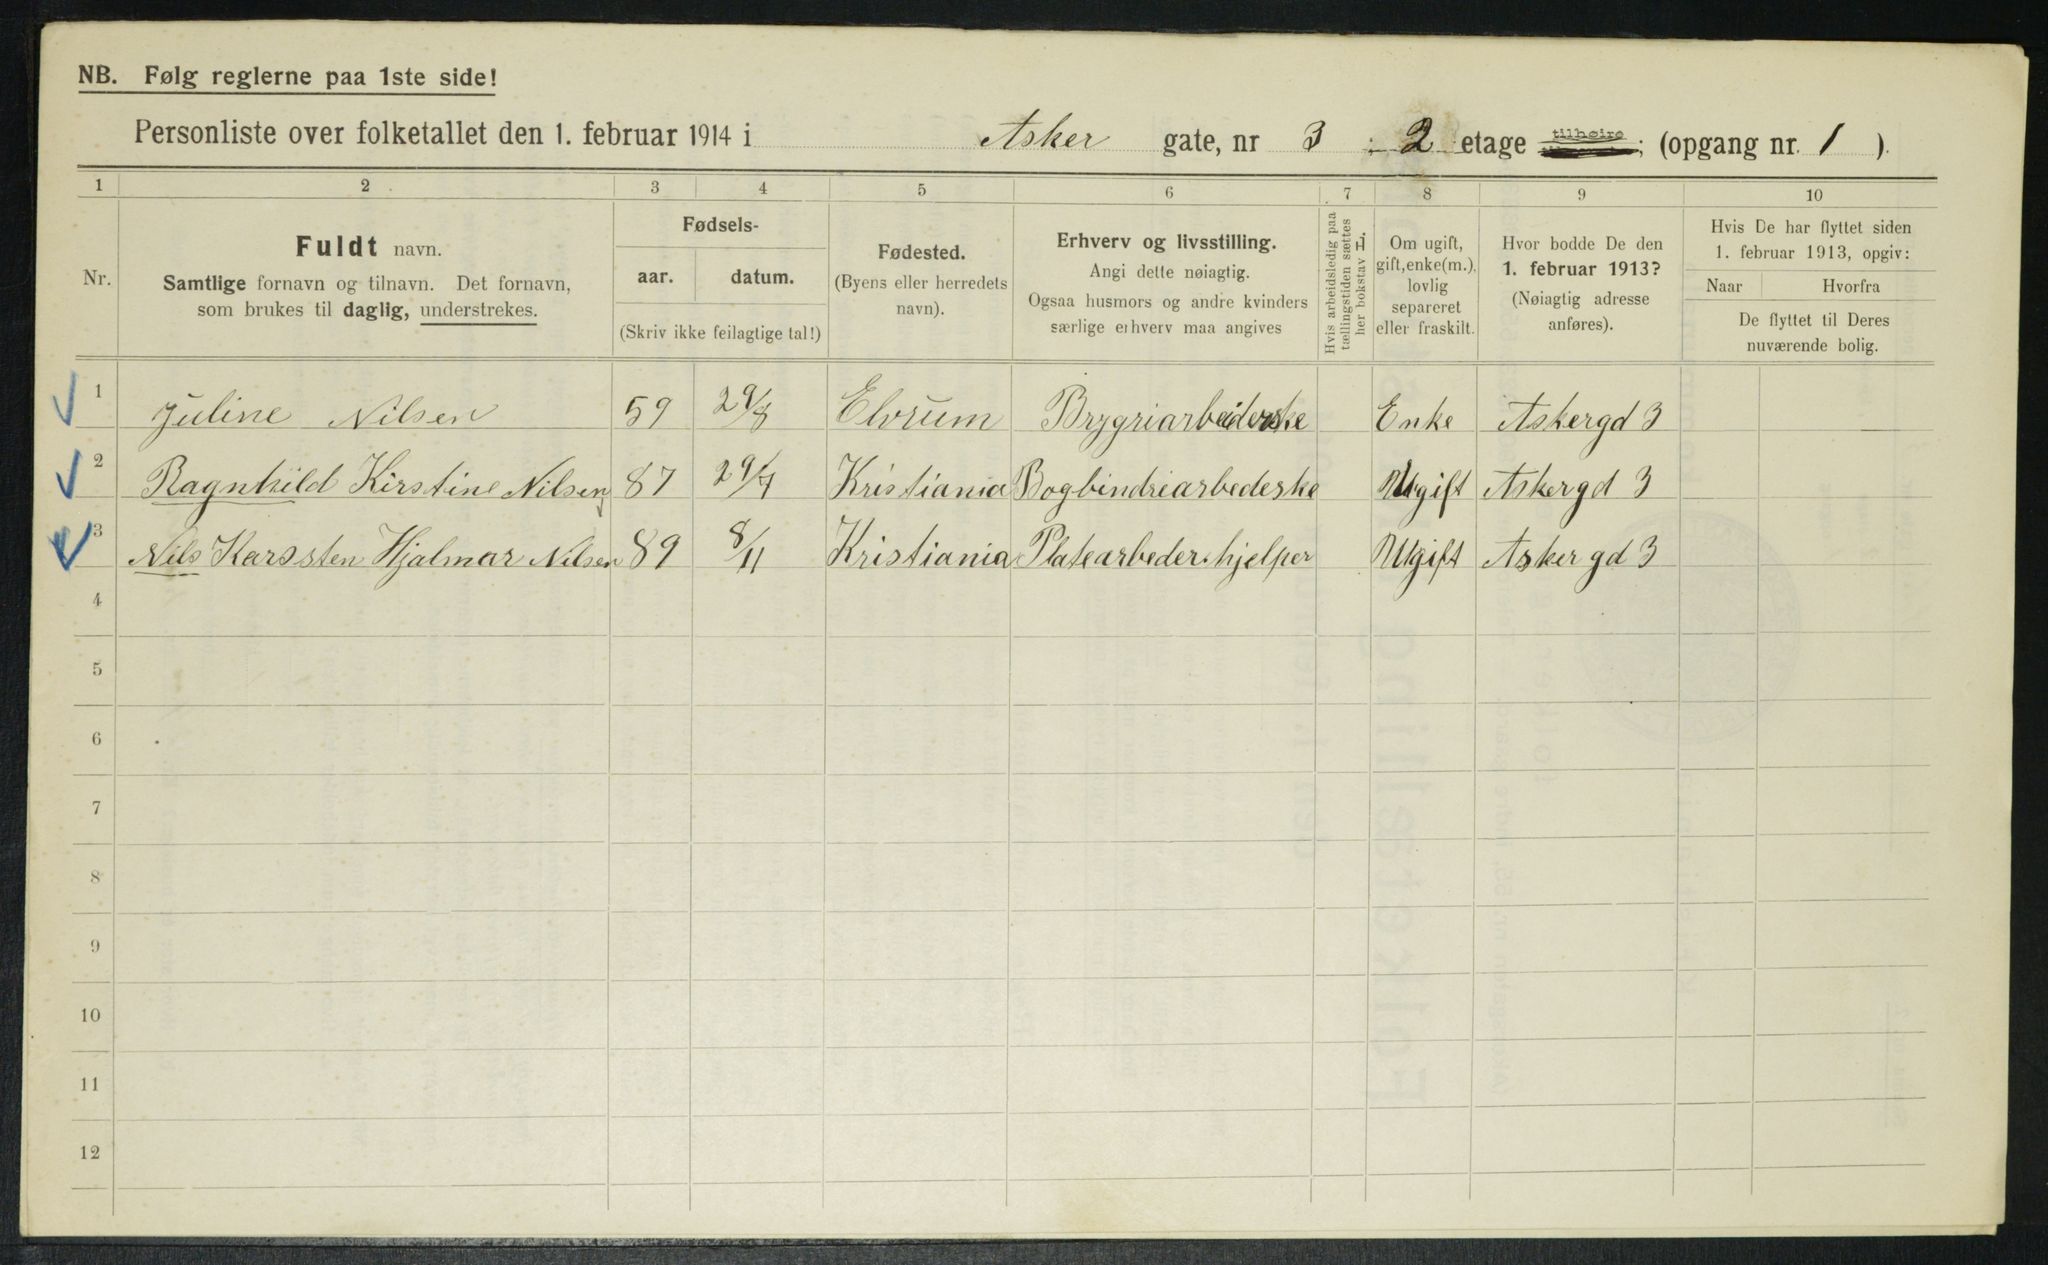 NB. Følg reglerne paa 1ste side!
Personliste over folketallet den 1. februar 1914 i Asker gate, nr 3 ; 2 etage tilhøire ; (opgang nr. 1 ).
1 2 3 4 5 6 7 8 9 10
Nr.
Fuldt navn.
Samtlige fornavn og tilnavn. Det fornavn,
som brukes til daglig, understrekes.
Fødsels-
aar. datum.
(Skriv ikke feilagtige tal!)
Fødested.
(Byens eller herredets
navn).
Erhverv og livsstilling.
Angi dette nøiagtig.
Ogsaa husmors og andre kvinders
særlige erhverv maa angives
Hvis arbeidsledig paa
tællingstiden sættes
her bokstav L.
Om ugift,
gift, enke(m.),
lovlig
separeret
eller fraskilt.
Hvor bodde De den
1. februar 1913?
(Nøiagtig adresse
anføres).
Hvis De har flyttet siden
1. februar 1913, opgiv:
Naar Hvorfra
De flyttet til Deres
nuværende bolig.
1 Juline Nilsen 59 29/8 Elvrum Brygriarbeiderske Enke Askergd 3
2 Ragnhild Kirstine Nilsen 87 29/7 Kristiania Bogbindriearbederske Ugift Askergd 3
3 Nils Karssten Hjalmar Nilsen 89 8/11 Kristiania Platearbeders hjelper Ugift Asker gd 3
4
5
6
7
8
9
10
11
12